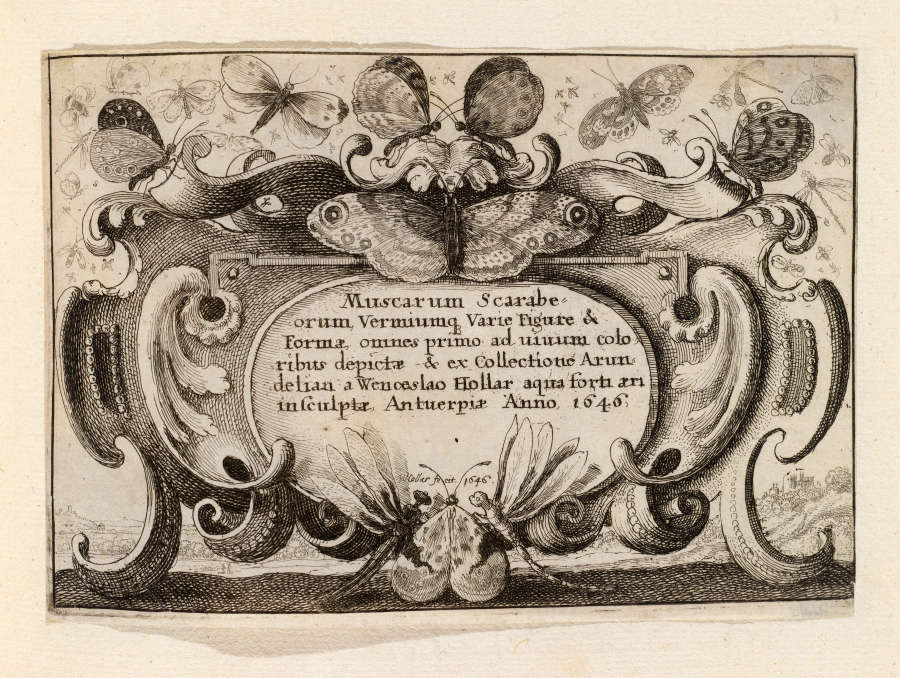 Muscarum Scarabe-
orum, Vermiumq Varie Figure &
Formæ, omnes primo ad uiuum colo-
ribus depictæ & ex Collectione Arun-
delian a Wenceslao Hollar aqua forti æri
insculptæ, Antuerpiæ Anno, 1646.
Hollar fecit. 1646